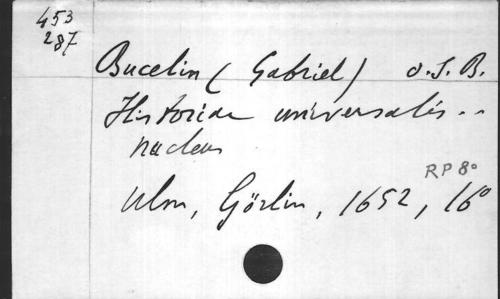 453
287
Bucelin (Gabriel) O.S.B.
Historiae universalis ..
nucleus
Ulm, Görlin, 1652, 16°
RP 8°